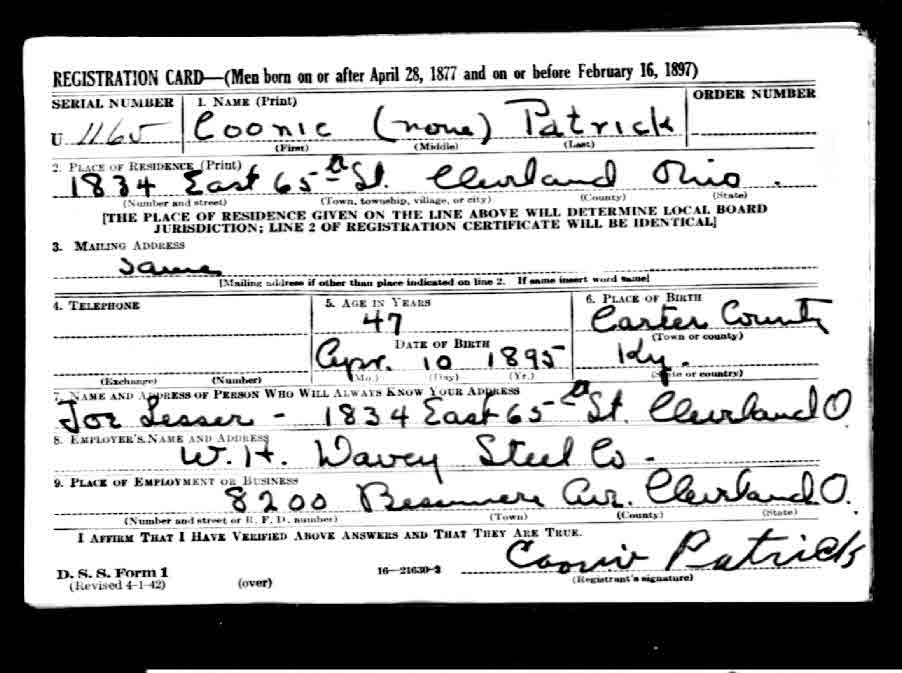 REGISTRATION CARD—(Men born on or after April 28, 1877 and on or before February 16, 1897)
SERIAL NUMBER 1. NAME (Print) ORDER NUMBER
U 1165 Coonie (none) Patrick
(First) (Middle) (Last)
2. PLACE OF RESIDENCE (Print)
1834 East 65th St. Cleveland Ohio.
(Number and street) (Town, township, village, or city) (County) (State)
[THE PLACE OF RESIDENCE GIVEN ON THE LINE ABOVE WILL DETERMINE LOCAL BOARD
JURISDICTION; LINE 2 OF REGISTRATION CERTIFICATE WILL BE IDENTICAL]
3. MAILING ADDRESS
Same
[Mailing address if other than place indicated on line 2. If same insert word same]
4. TELEPHONE 5. AGE IN YEARS 6. PLACE OF BIRTH
47 Carter County
(Town or county)
DATE OF BIRTH
Apr. 10 1895 Ky.
(Exchange) (Number) (Mo.) (Day) (Yr.) (State or country)
7. NAME AND ADDRESS OF PERSON WHO WILL ALWAYS KNOW YOUR ADDRESS
Joe Lesser - 1834 East 65th St. Cleveland O
8. EMPLOYER'S NAME AND ADDRESS
W. H. Davey Steel Co -
9. PLACE OF EMPLOYMENT OR BUSINESS
8200 Bessemere Ave. Cleveland O.
(Number and street or R. F. D. number) (Town) (County) (State)
I AFFIRM THAT I HAVE VERIFIED ABOVE ANSWERS AND THAT THEY ARE TRUE.
Coonie Patrick
D. S. S. Form 1
(Revised 4-1-42) (over) 16—21630-2 (Registrant's signature)